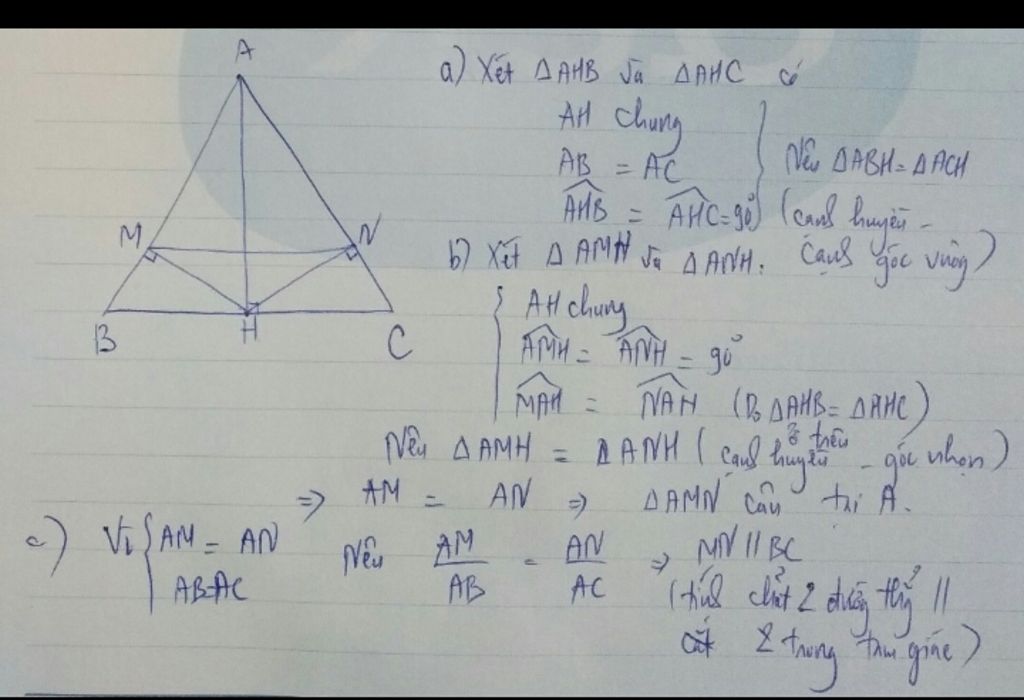 A
M
N
B
H
C
a) Xét ΔAHB và ΔAHC có
AH chung
AB = AC
Nên ΔABH = ΔACH
AHB = AHC = 90° (cạnh huyền -
cạnh góc vuông)
b) Xét ΔAMH và ΔANH:
AH chung
AMH = ANH = 90°
MAH = NAH (Do ΔAHB = ΔAHC)
ở trên
Nên ΔAMH = ΔANH (cạnh huyền - góc nhọn)
=> AM = AN => ΔAMN cân tại A.
c) Vì AM = AN
AB=AC
Nên AM/AB = AN/AC => MN // BC
(tính chất 2 đường thẳng //
cắt 2 trong tam giác)